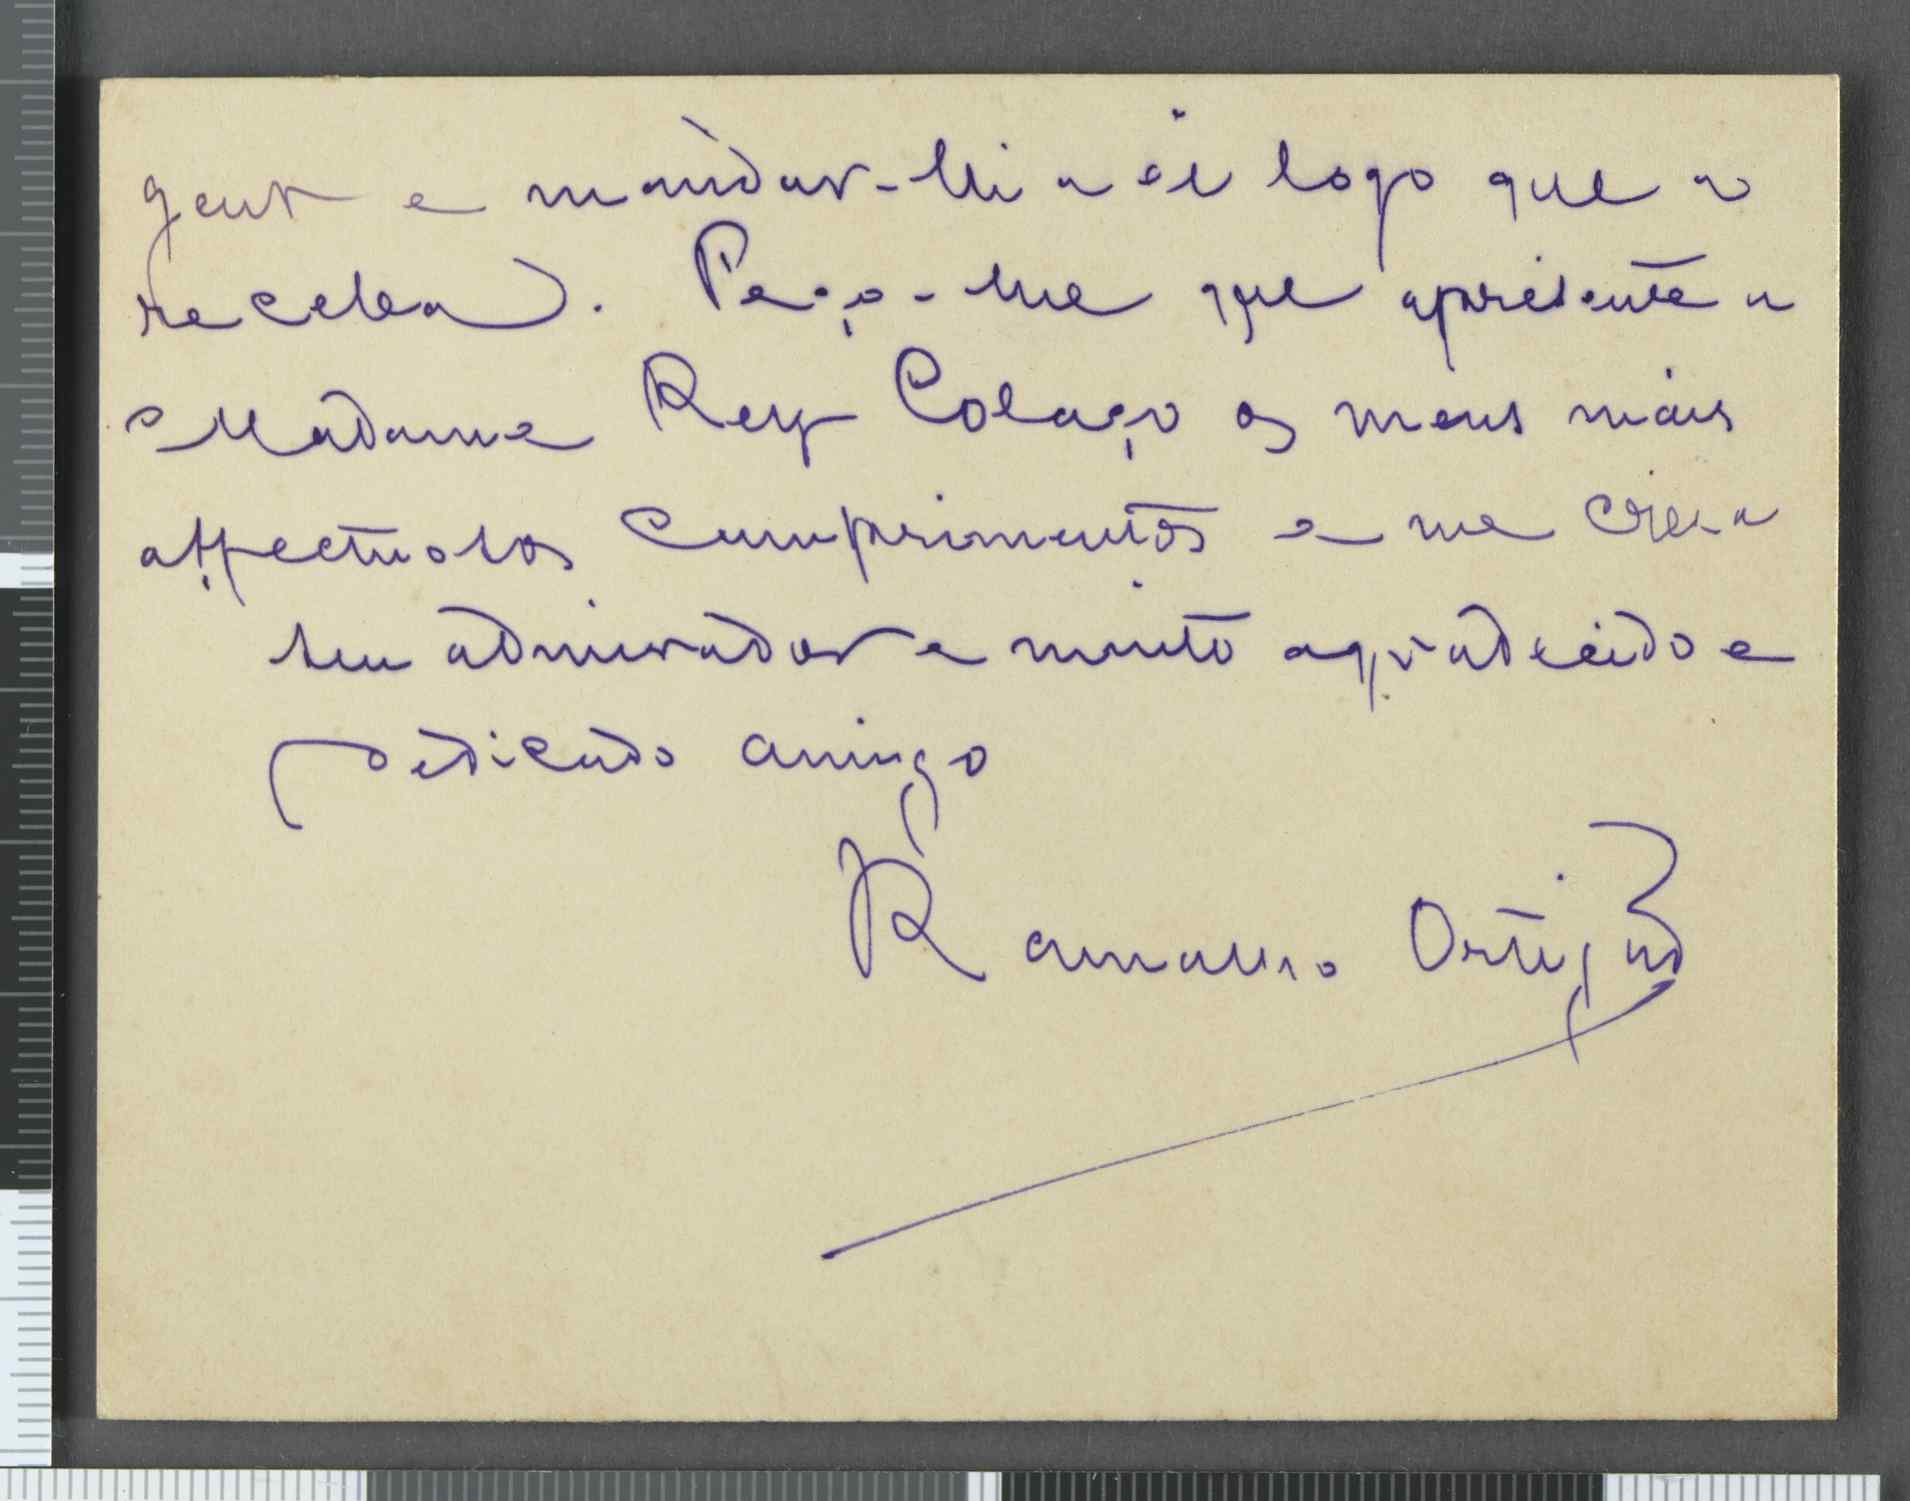 Gent e mandar-lh'a-ei logo que a
receba. Peço-lhe que apresente a
Madame Rey Colaço os meus mais
affectuosos cumprimentos e me creia
seu admirador e muito agradecido e
dedicado amigo
Ramalho Ortigão